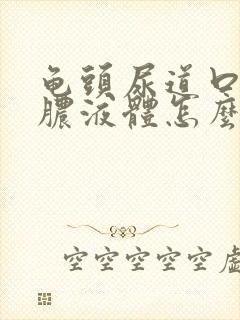 龟頭尿道口
膿液體怎麼
空空空空空虛